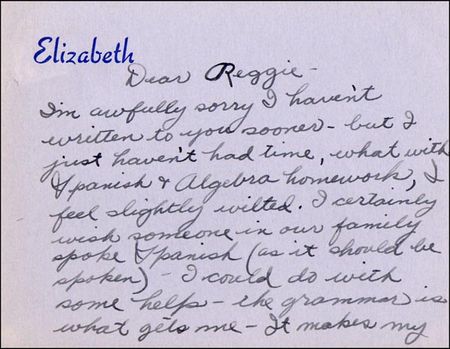 Elizabeth
Dear Reggie -
I'm awfully sorry I haven't
written to you sooner - but I
just haven't had time, what with
Spanish & Algebra homework, I
feel slightly wilted. I certainly
wish someone in our family
spoke Spanish (as it should be
spoken) - I could do with
some helps - the grammar is
what gets me - It makes my